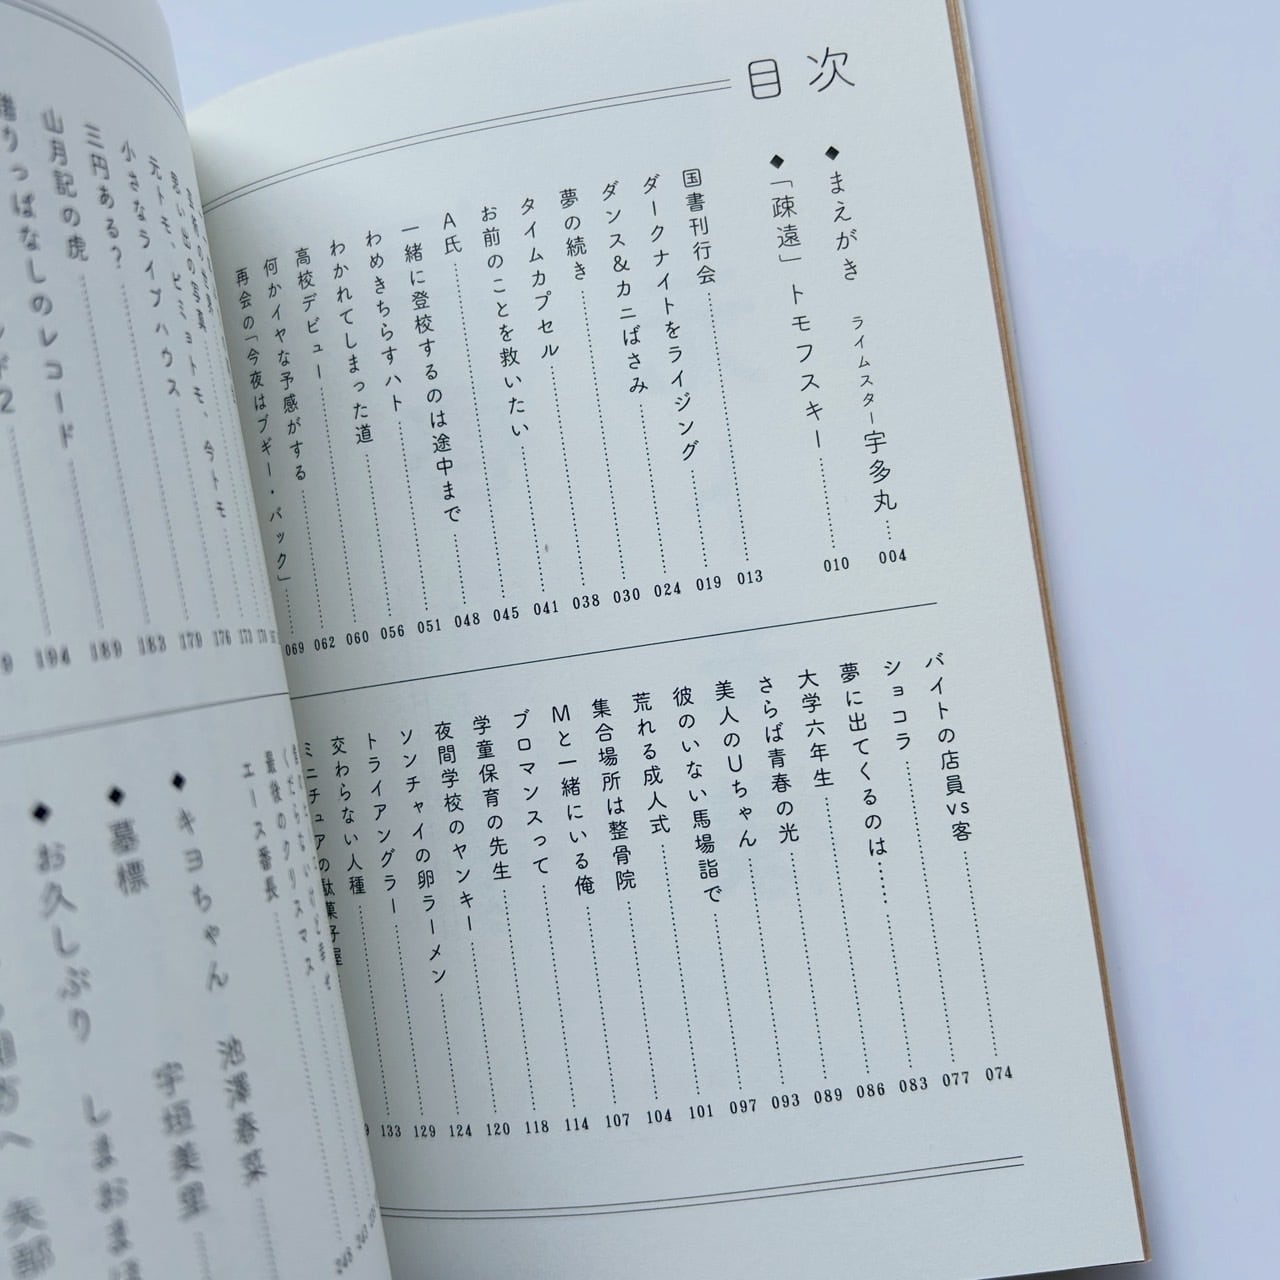 目次
◆まえがき ライムスター宇多丸…004
◆「疎遠」トモフスキー…010
国書刊行会…013
ダークナイトをライジング…019
ダンス&カニばさみ…024
夢の続き…030
タイムカプセル…038
お前のことを救いたい…041
A氏…045
一緒に登校するのは途中まで…048
わめきちらすハト…051
わかれてしまった道…056
高校デビュー…060
何かイヤな予感がする…062
再会の「今夜はブギー・バック」…069
バイトの店員vs客…074
ショコラ…077
夢に出てくるのは……083
大学六年生…086
さらば青春の光…089
美人のUちゃん…093
彼のいない馬場詣で…097
荒れる成人式…101
集合場所は整骨院…104
Mと一緒にいる俺…107
ブロマンスって…114
学童保育の先生…118
夜間学校のヤンキー…120
ソンチャイの卵ラーメン…124
トライアングラー…129
交わらない人種…133
ミニチュアの駄菓子屋
元トモ、ビミョトモ、今トモ…176
小さなライブハウス…179
三円ある?…183
山月記の虎…189
借りっぱなしのレコード…194
最後のクリスマス
エース番長
◆キヨちゃん 池澤春菜
◆墓標 宇垣美里
◆お久しぶり しまおまほ